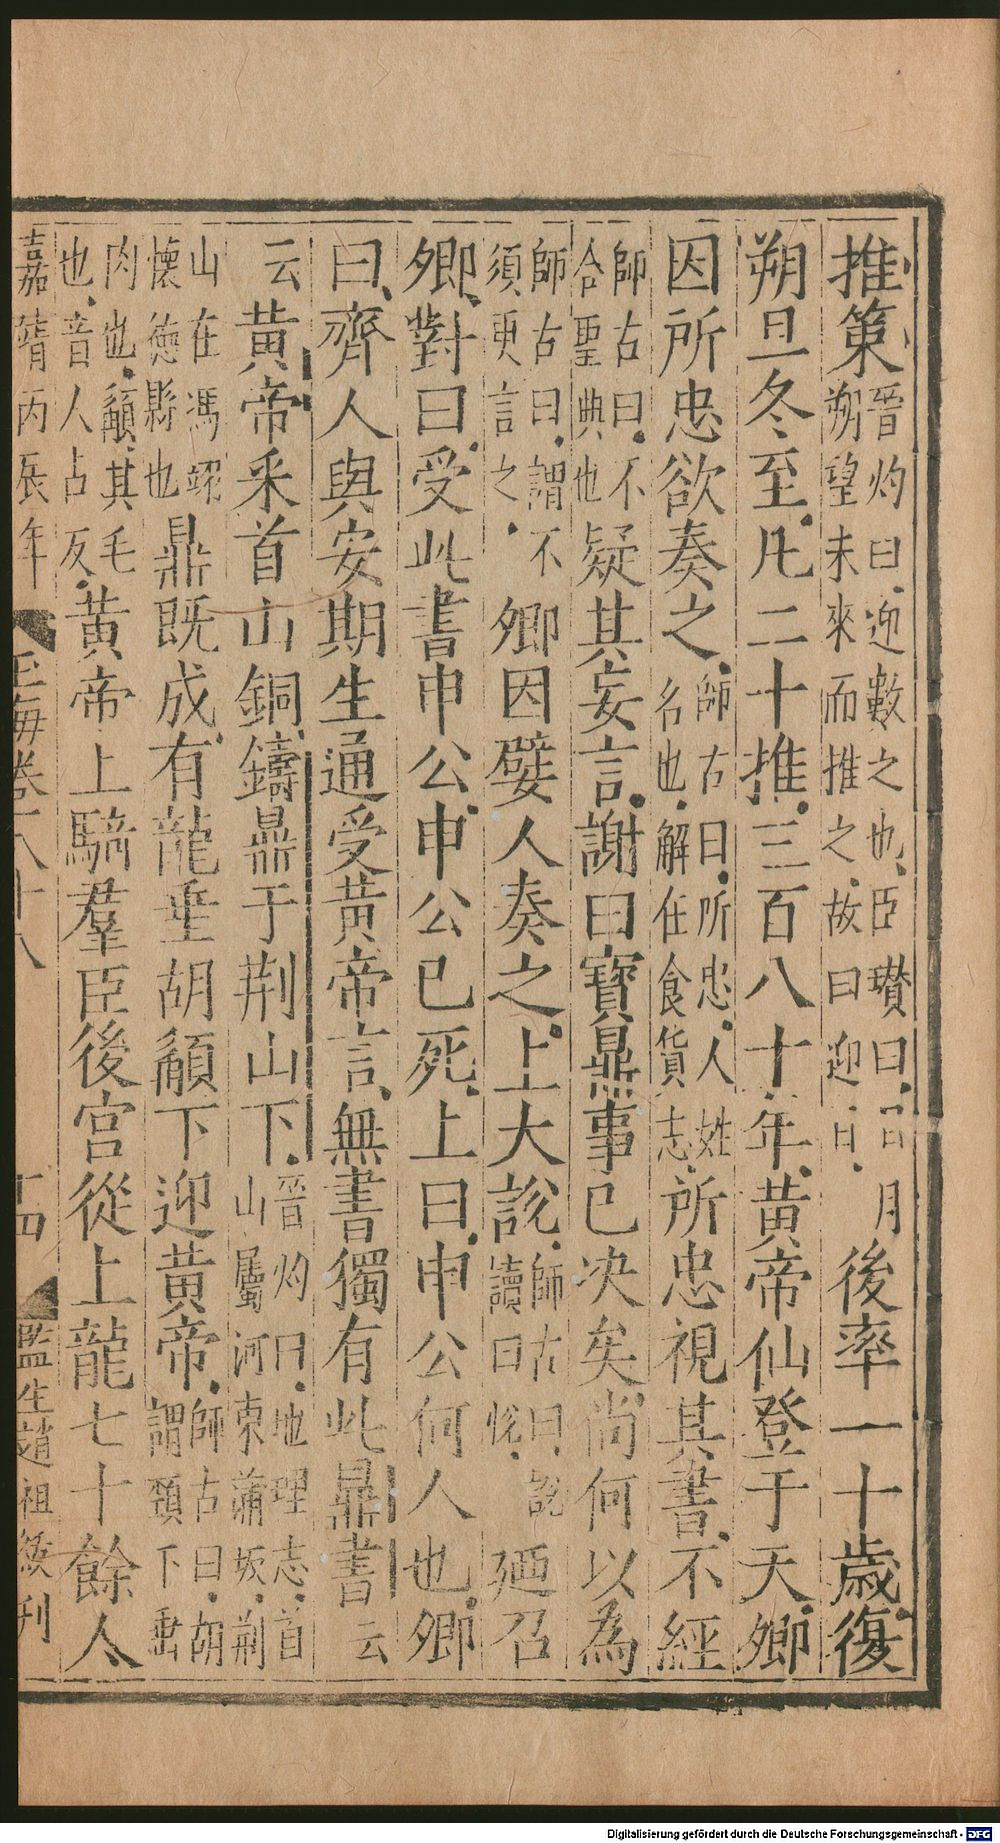 推策晉灼曰迎數之也臣瓚曰日月朔望未來而推之故曰迎日後率一十歳復
朔旦冬至凡二十推三百八十年黄帝仙登于天卿
因所忠欲奏之師古曰所忠人姓名也解在食貨志所忠視其書不經
師古曰不合聖典也疑其妄言謝曰寳鼎事已决矣尚何以為
師古曰謂不須更言之卿因嬖人奏之上大説師古曰説讀曰悅廼召
卿對曰受此書申公申公已死上曰申公何人也卿
曰齊人與安期生通受黄帝言無書獨有此鼎書云
云黄帝采首山銅鑄鼎于荆山下晉灼曰地理志首山屬河東蒲坂荆
山在馮翊懐徳縣也鼎既成有龍垂胡髯下迎黄帝師古曰胡謂頸下垂
肉也髯其毛也音人占反黄帝上騎羣臣後宫從上龍七十餘人
嘉靖丙辰年 玉海卷一八十八 十四 監生趙祖刋
Digitalisierung gefördert durch die Deutsche Forschungsgemeinschaft - DFG